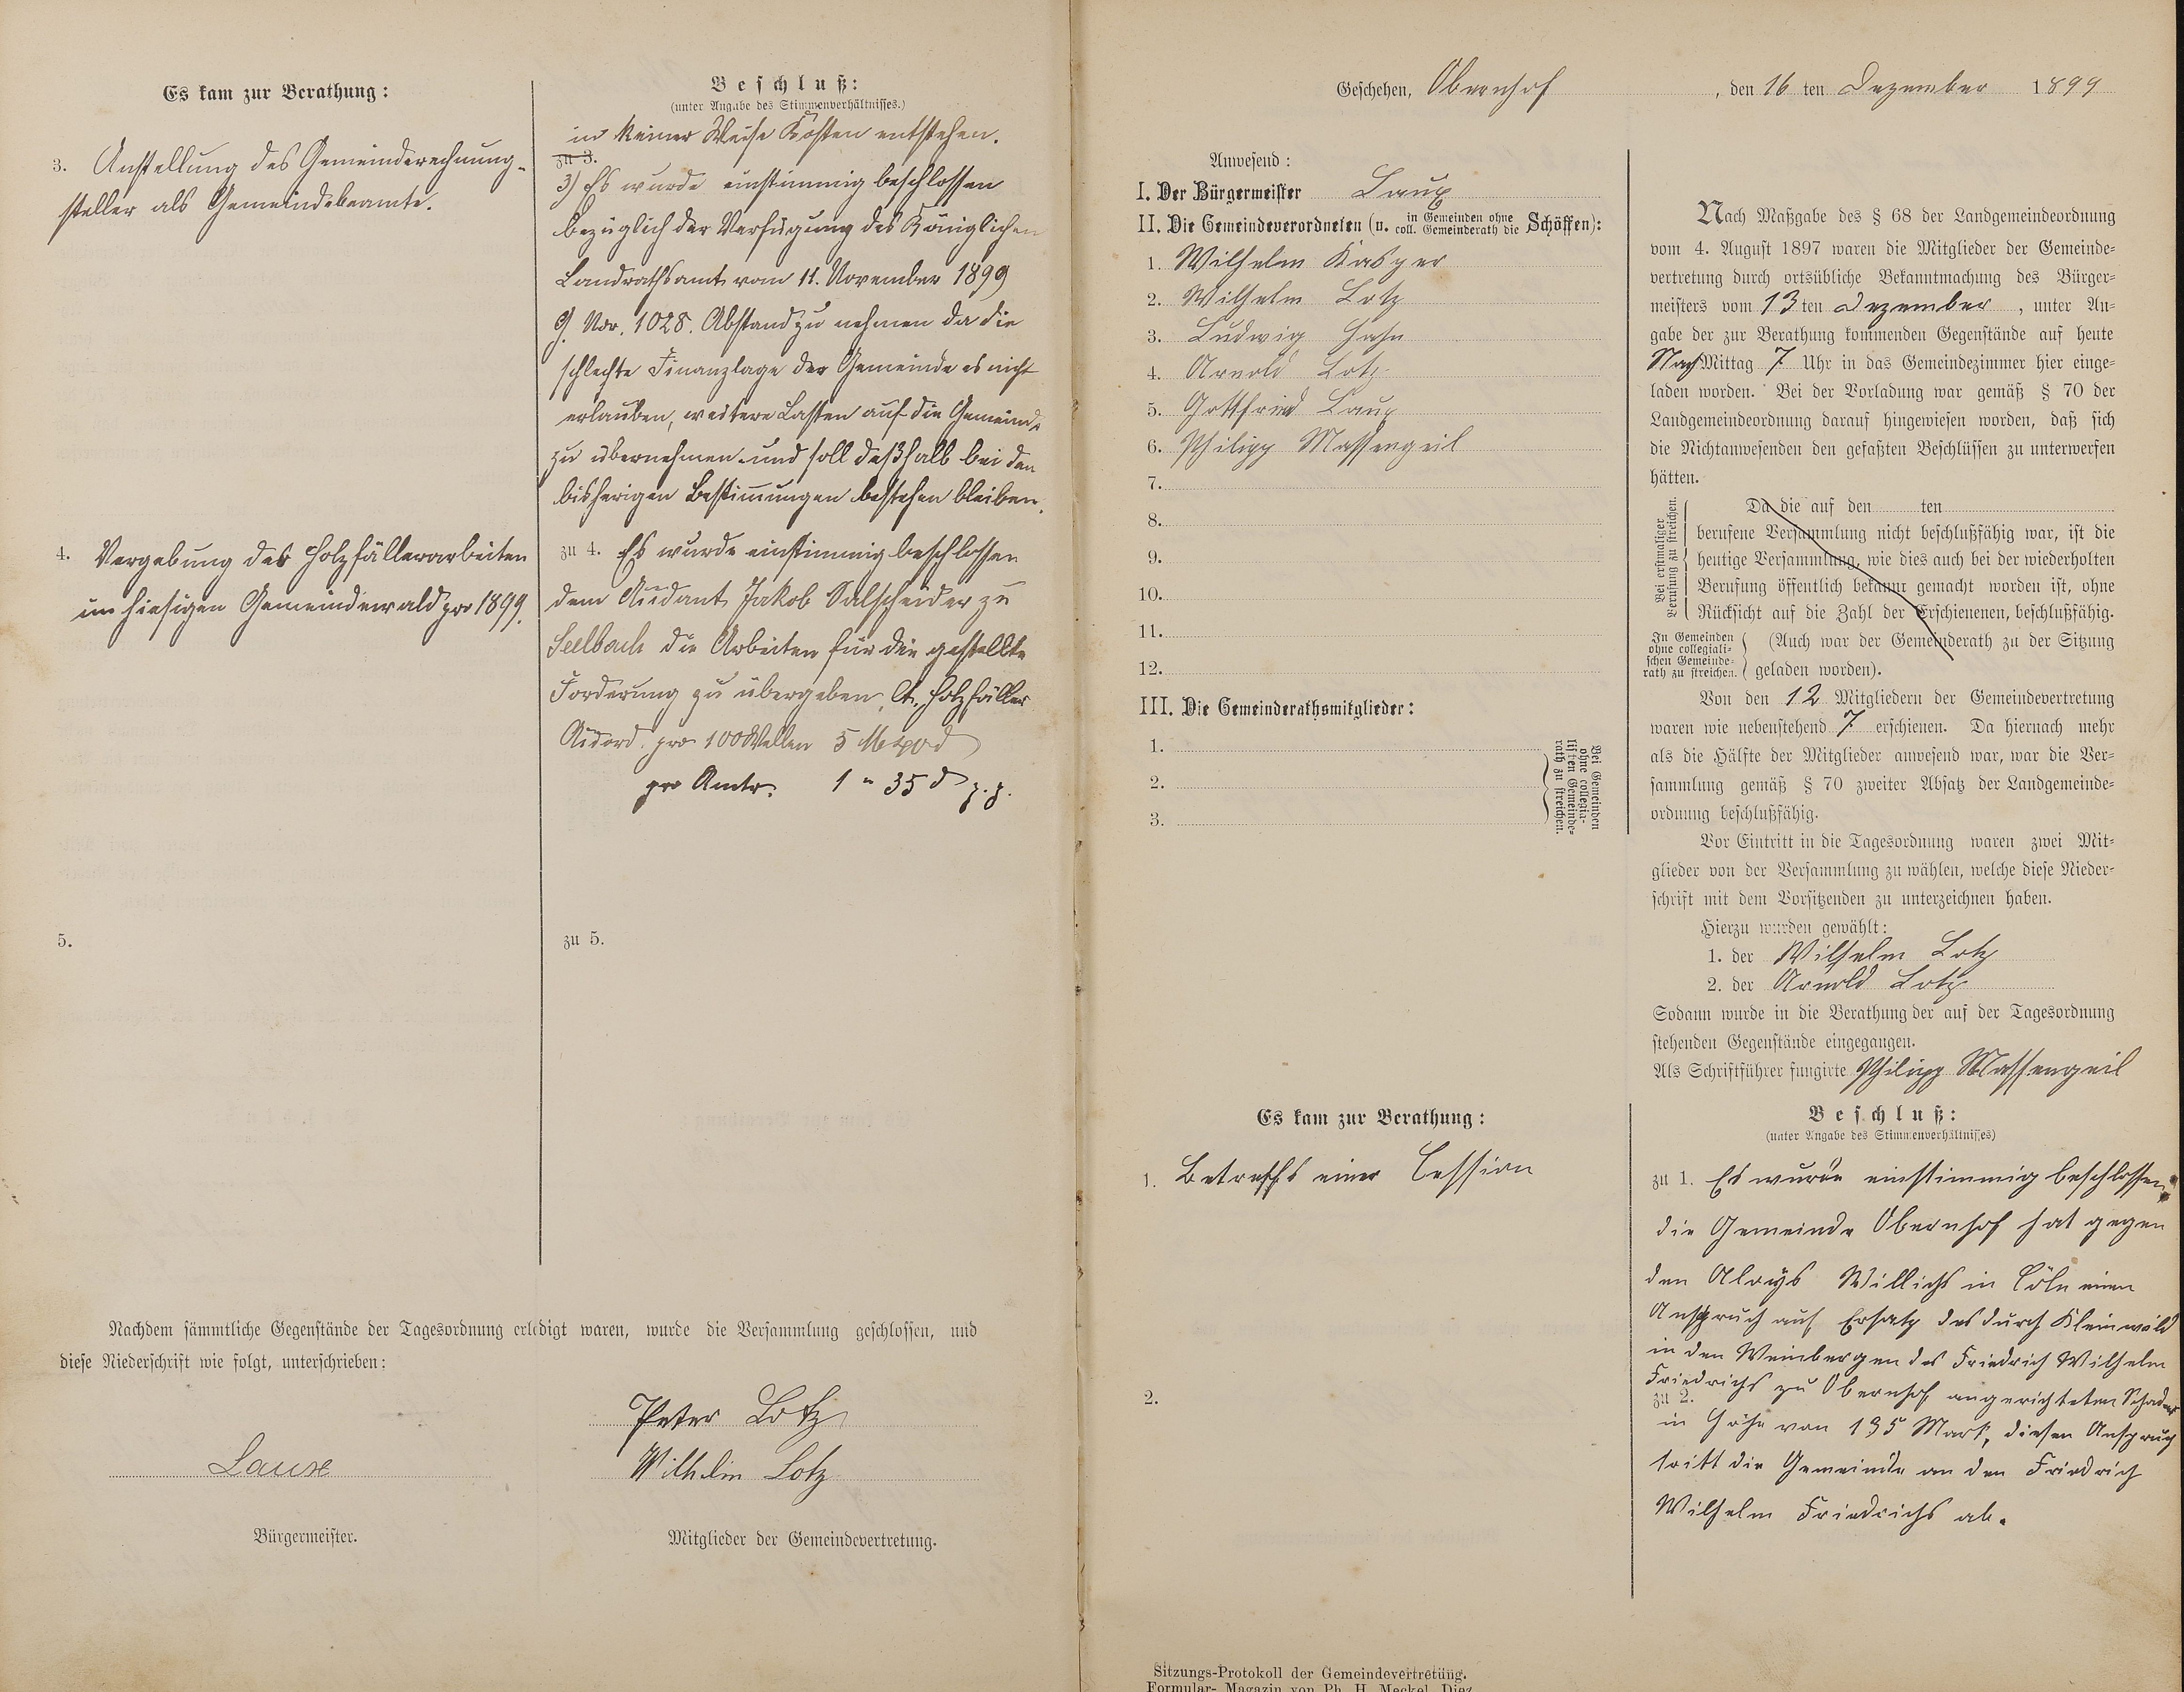 Es kam zur Berathung:
3. Anstellung des Gemeinderechnung-
steller als Gemeindebeamte.
4. Vergebung des Holzfällerarbeiten
im hiesigen Gemeindewald pro 1899.
5.
Beschluß:
(unter Angabe des Stimmenverhältnisses.)
in keiner Weise Kosten entstehen.
zu 3.
3) Es wurde einstimmig beschlossen
bezüglich der Verfügung des Königlichen
Landrathsamt vom 11. November 1899
Nor. 1028. Abstand zu nehmen da die
schlechte Finanzlage der Gemeinde es nicht
erlauben, weitere Lasten auf die Gemeinde
zu übernehmen und soll deßhalb bei den
bisherigen Bestimmungen bestehen bleiben.
zu 4. Es wurde einstimmig beschlossen
dem Jakob Salscheider zu
Seelbach die Arbeiten für die gestellte
Forderung zu übergeben, Holzfäller
pro 100 Wellen 5 M
pro 1 " 35
zu 5.
Nachdem sämmtliche Gegenstände der Tagesordnung erledigt waren, wurde die Versammlung geschlossen, und
diese Niederschrift wie folgt, unterschrieben:
Peter Lotz
Laux
Wilhelm Lotz
Bürgermeister.
Mitglieder der Gemeindevertretung.
Geschehen, Obernhof, den 16 ten Dezember 1899
Anwesend:
I. Der Bürgermeister Laux
II. Die Gemeindeverordneten (u. in Gemeinden ohne coll. Gemeinderath die Schöffen):
1. Wilhelm Kasper
2. Wilhelm Lotz
3. Ludwig Hahn
4. Arnold Lotz
5. Gottfried Laux
6. Philipp Massengeil
7.
8.
9.
10.
11.
12.
III. Die Gemeinderathsmitglieder:
1.
2.
3.
Bei Gemeinden
ohne collegia-
lischen Gemeinde-
rath zu streichen.
Nach Maßgabe des § 68 der Landgemeindeordnung
vom 4. August 1897 waren die Mitglieder der Gemeinde-
vertretung durch ortsübliche Bekanntmachung des Bürger-
meisters vom 13 ten Dezember, unter An-
gabe der zur Berathung kommenden Gegenstände auf heute
Nach Mittag 7 Uhr in das Gemeindezimmer hier einge-
laden worden. Bei der Vorladung war gemäß § 70 der
Landgemeindeordnung darauf hingewiesen worden, daß sich
die Nichtanwesenden den gefaßten Beschlüssen zu unterwerfen
hätten.
Bei erstmaliger
Berufung zu streichen.
Da die auf den ten
berufene Versammlung nicht beschlußfähig war, ist die
heutige Versammlung, wie dies auch bei der wiederholten
Berufung öffentlich bekannt gemacht worden ist, ohne
Rücksicht auf die Zahl der Erschienenen, beschlußfähig.
In Gemeinden
ohne collegiali-
schen Gemeinde-
rath zu streichen.
(Auch war der Gemeinderath zu der Sitzung
geladen worden).
Von den 12 Mitgliedern der Gemeindevertretung
waren wie nebenstehend 7 erschienen. Da hiernach mehr
als die Hälfte der Mitglieder anwesend war, war die Ver-
sammlung gemäß § 70 zweiter Absatz der Landgemeinde-
ordnung beschlußfähig.
Vor Eintritt in die Tagesordnung waren zwei Mit-
glieder von der Versammlung zu wählen, welche diese Nieder-
schrift mit dem Vorsitzenden zu unterzeichnen haben.
Hierzu wurden gewählt:
1. der Wilhelm Lotz
2. der Arnold Lotz
Sodann wurde in die Berathung der auf der Tagesordnung
stehenden Gegenstände eingegangen.
Als Schriftführer fungirte Philipp Massengeil
Es kam zur Berathung:
1. Betreffs einer Cession
2.
Beschluß:
(unter Angabe des Stimmenverhältnisses)
zu 1. Es wurde einstimmig beschlossen,
die Gemeinde Obernhof hat gegen
den Aloys Willichs in Cöln einen
Anspruch auf Ersatz des durch Kleinwild
in den Weinbergen des Friedrich Wilhelm
Friedrichs zu Obernhof angerichteten Schaden
zu 2.
in Höhe von 195 Mark, diesen Anspruch
tritt die Gemeinde an den Friedrich
Wilhelm Friedrichs ab.
Sitzungs-Protokoll der Gemeindevertretung.
Formular-Magazin von Ph. H. Meckel, Diez